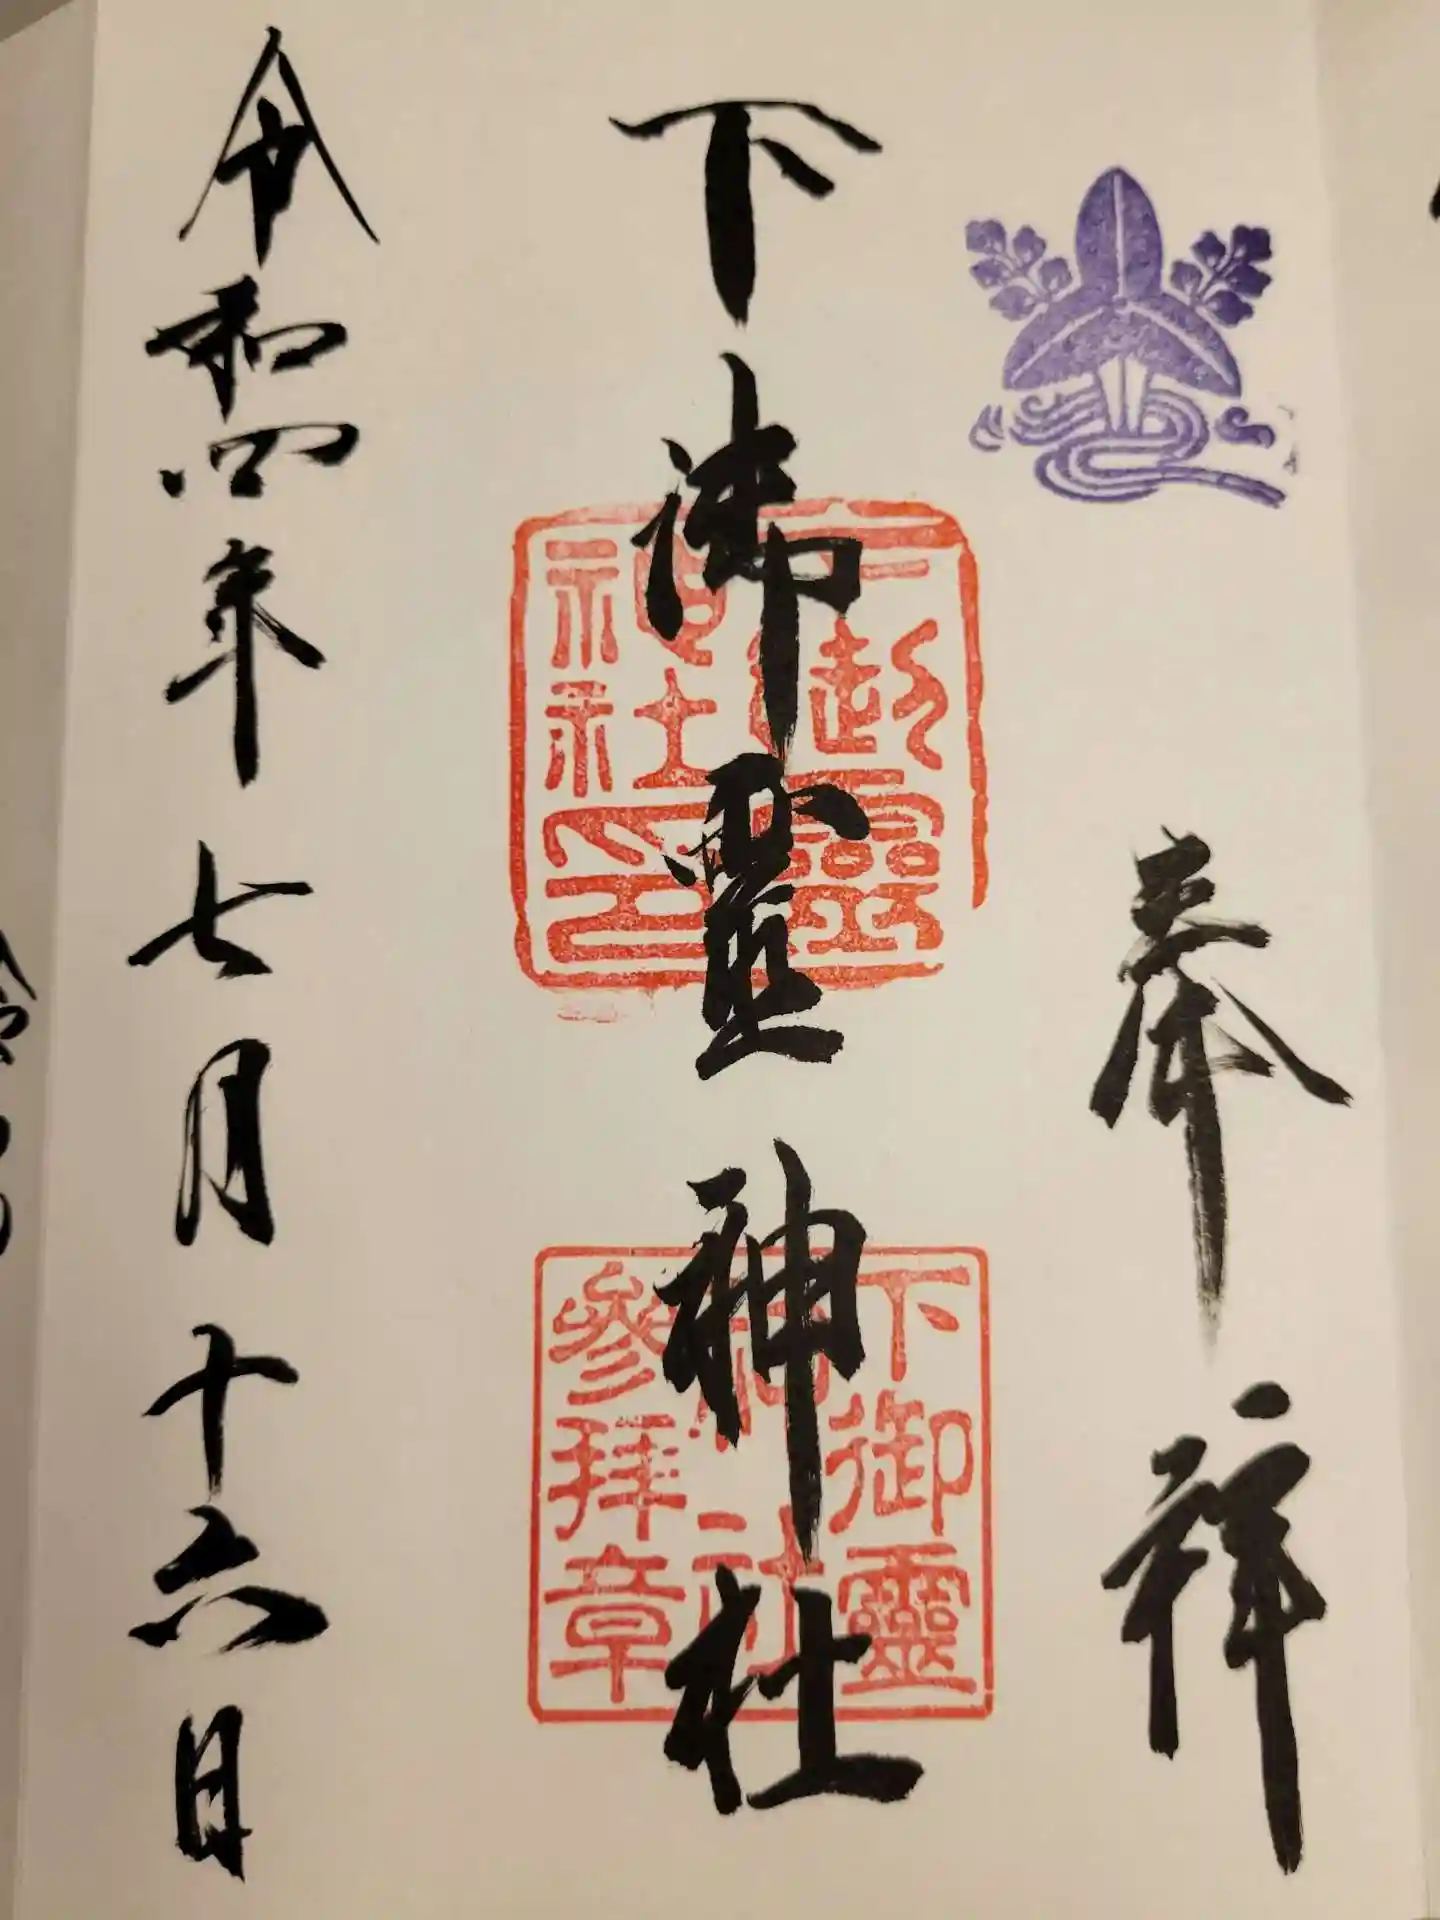 奉拜
下御靈神社
下御靈神社印
下御靈神社參拝章
令和四年七月十六日